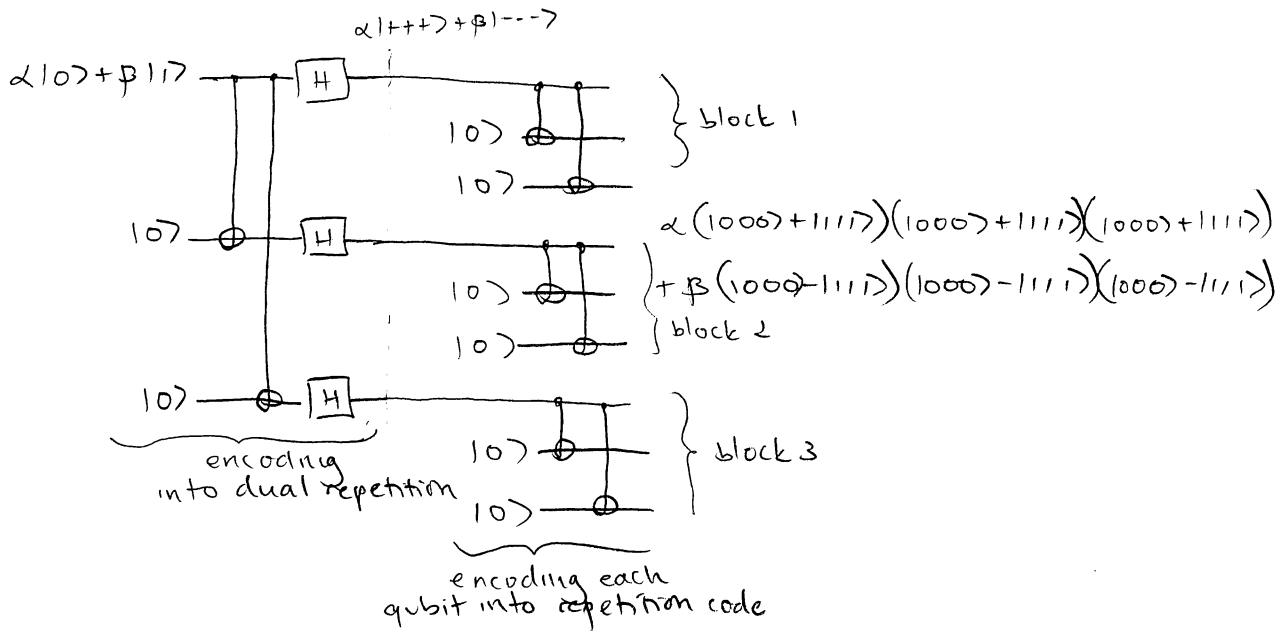 α|+++> + β|--->
α|0> + β|1>
H
|0>
block 1
|0>
|0>
H
α(|000>+|111>)(|000>+|111>)(|000>+|111>)
|0>
+ β(|000>-|111>)(|000>-|111>)(|000>-|111>)
|0>
block 2
|0>
H
|0>
block 3
encoding
into dual repetition
|0>
encoding each
qubit into repetition code